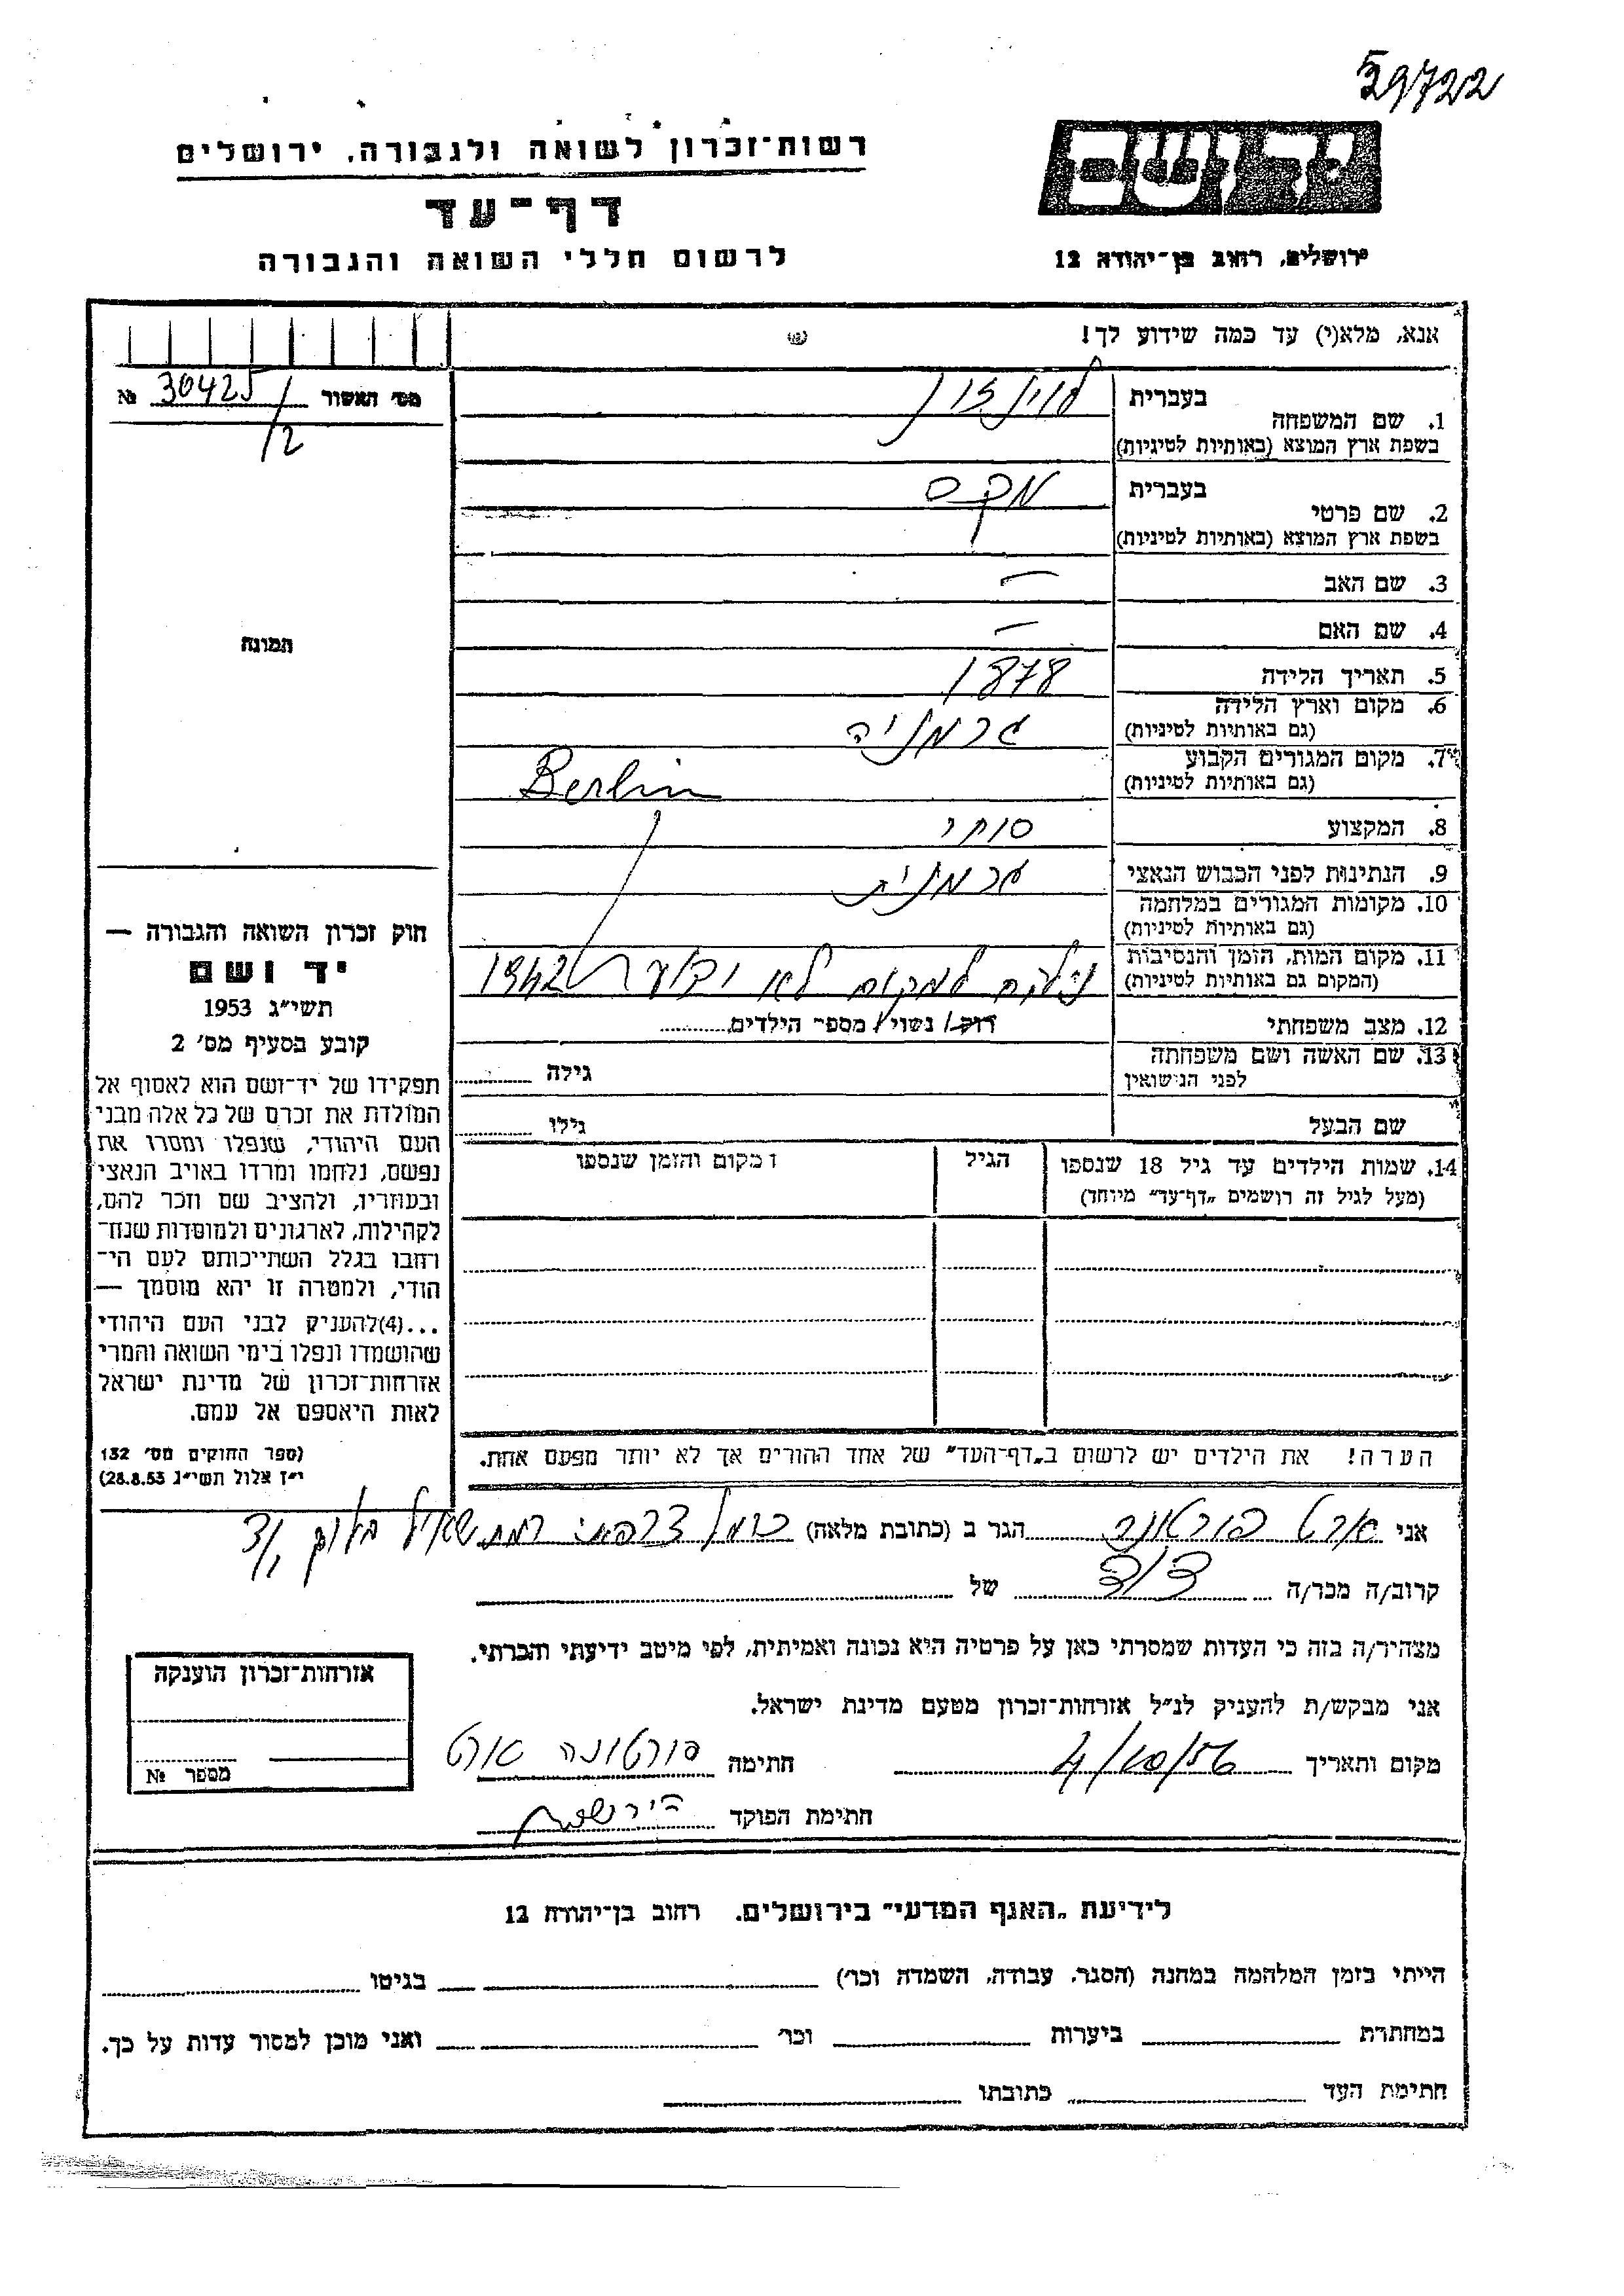 59722
יד ושם
רשות־זכרון לשואה ולגבורה, ירושלים
דף־עד
לרשום חללי השואה והגבורה
ירושלים, רחוב בן־יהודה 12
אנא, מלא(י) עד כמה שידוע לך!
מס׳ האשור 30425/12 №
1. שם המשפחה
בעברית לוינזון
בשפת ארץ המוצא (באותיות לטיניות)
2. שם פרטי
בעברית מקס
בשפת ארץ המוצא (באותיות לטיניות)
3. שם האב —
4. שם האם —
תמונה
5. תאריך הלידה 1878
6. מקום וארץ הלידה גרמניה
(גם באותיות לטיניות)
7. מקום המגורים הקבוע Berlin
(גם באותיות לטיניות)
8. המקצוע סוחר
9. הנתינות לפני הכבוש הנאצי גרמנית
10. מקומות המגורים במלחמה
(גם באותיות לטיניות)
11. מקום המות, הזמן והנסיבות
(המקום גם באותיות לטיניות) נלקח למקום לא ידוע 1942
12. מצב משפחתי רוק/ נשוי/ מספר הילדים
13. שם האשה ושם משפחתה
לפני הנישואין גילה
שם הבעל גילו
14. שמות הילדים עד גיל 18 שנספו הגיל מקום והזמן שנספו
(מעל לגיל זה רושמים „דף־עד״ מיוחד)
הערה! את הילדים יש לרשום ב„דף־העד״ של אחד ההורים אך לא יותר מפעם אחת.
חוק זכרון השואה והגבורה —
יד ושם
תשי״ג 1953
קובע בסעיף מס׳ 2
תפקידו של יד־ושם הוא לאסוף אל
המולדת את זכרם של כל אלה מבני
העם היהודי, שנפלו ומסרו את
נפשם, נלחמו ומרדו באויב הנאצי
ובעוזריו, ולהציב שם וזכר להם,
לקהילות, לארגונים ולמוסדות שנח־
רחבו בגלל השתייכותם לעם הי־
הודי, ולמטרה זו יהא מוסמך —
...(4)להעניק לבני העם היהודי
שהושמדו ונפלו בימי השואה והמרי
אזרחות־זכרון של מדינת ישראל
לאות היאספם אל עמם.
(ספר החוקים מס׳ 132
י״ז אלול תשי״ג 28.8.53)
אני ארט פורטונה הגר ב (כתובת מלאה) כרמל צרפתי רמת שאול
קרוב/ה מכר/ה דוד של
מצהיר/ה בזה כי העדות שמסרתי כאן על פרטיה היא נכונה ואמיתית, לפי מיטב ידיעתי והכרתי.
אני מבקש/ת להעניק לנ״ל אזרחות־זכרון מטעם מדינת ישראל.
מקום ותאריך 4/10/56 חתימה פורטונה ארט
חתימת הפוקד
אזרחות־זכרון הוענקה
מספר №
לידיעת „האגף המדעי״ בירושלים. רחוב בן־יהודה 12
הייתי בזמן המלהמה במחנה (הסגר, עבודה, השמדה וכר׳) בגיטו
במחתרת ביערות וכר׳ ואני מוכן למסור עדות על כך.
חתימת העד כתובתו